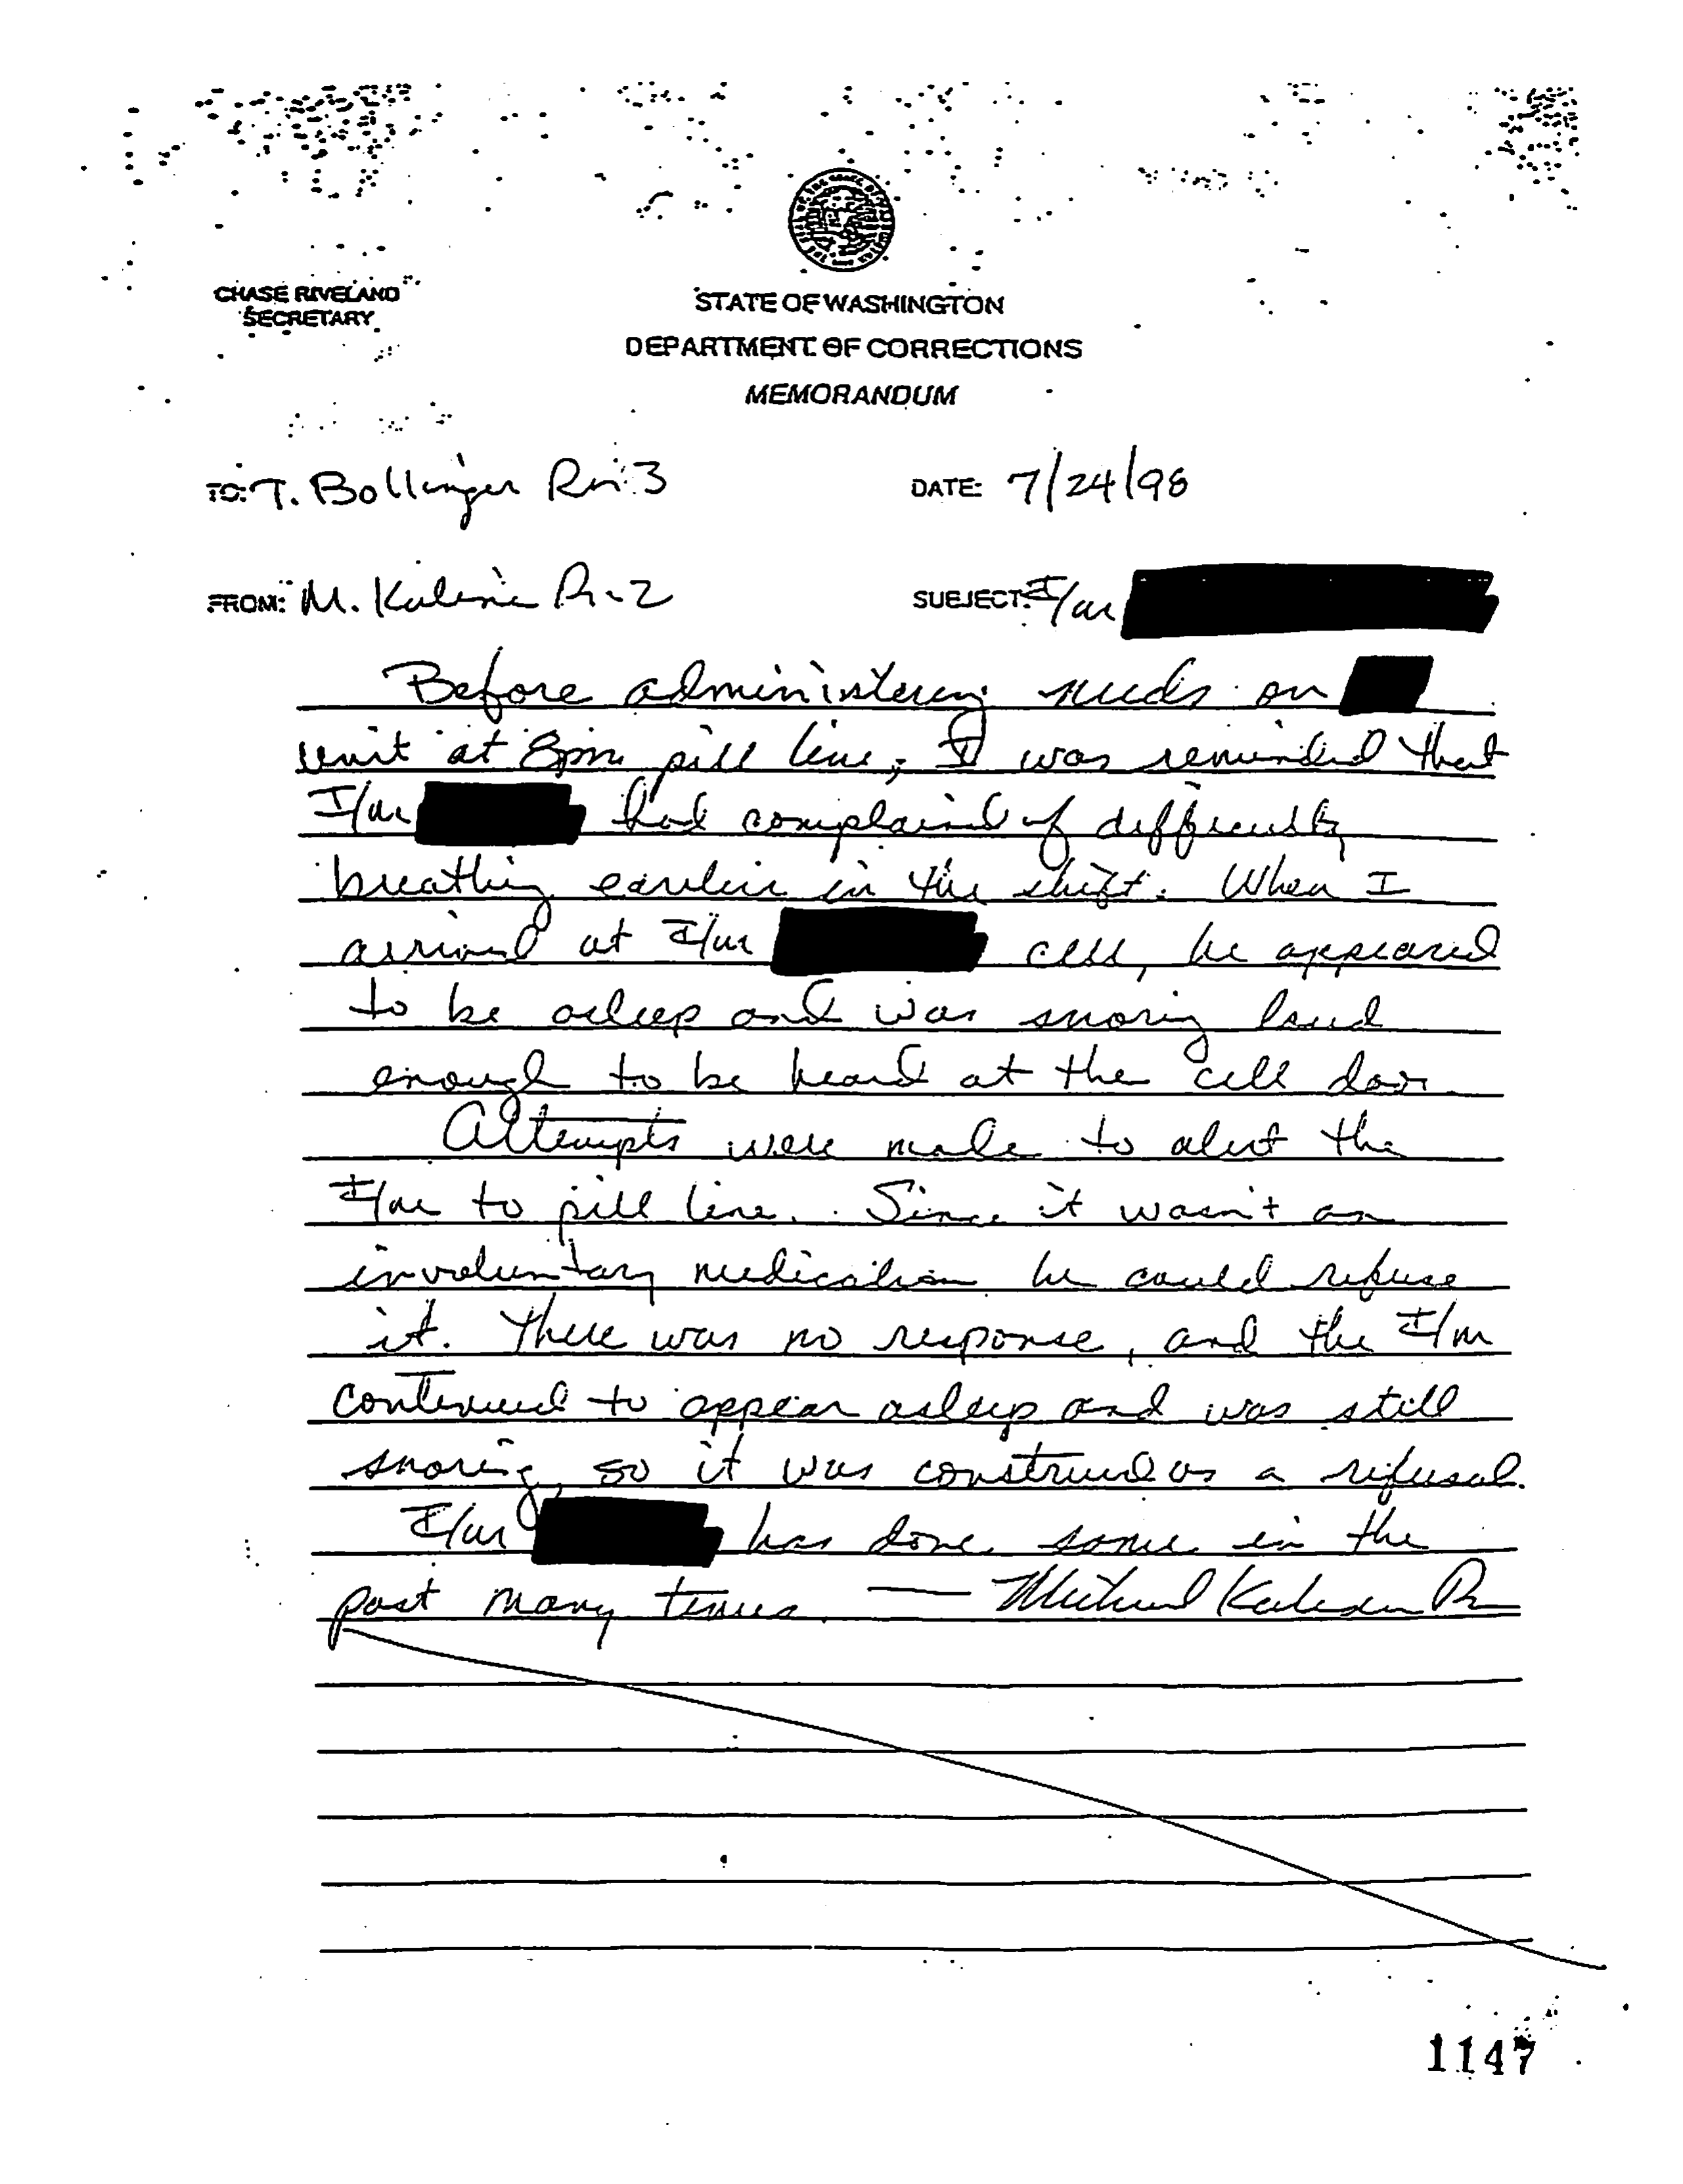 CHASE RIVELAND
SECRETARY
STATE OF WASHINGTON
DEPARTMENT OF CORRECTIONS
MEMORANDUM
TO: T. Bollinger Rn 3
DATE: 7/24/98
FROM: M. Kalina Rn 2
SUBJECT: I/m
Before administering meds on
unit at 8pm pill line, I was reminded that
I/m had complained of difficulty
breathing earlier in the shift. When I
arrived at I/m cell, he appeared
to be asleep and was snoring loud
enough to be heard at the cell door
Attempts were made to alert the
I/m to pill line. Since it wasn't an
involuntary medication he could refuse
it. There was no response, and the I/m
continued to appear asleep and was still
snoring, so it was construed as a refusal.
I/m has done same in the
past many times. — Michael Rn
1147